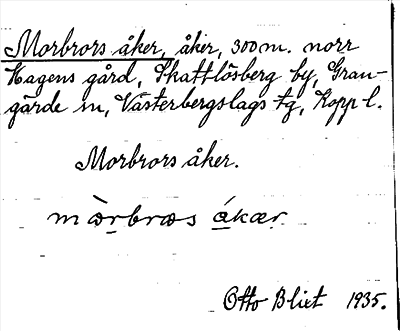 Morbrors åker, åker, 300 m. norr
Hagens gård, Skattlösberg by, Gran-
gärde sn, Västerbergslags tg, Kopp l.
Morbrors åker.
mòrbræs ákær.
Otto Blixt 1935.